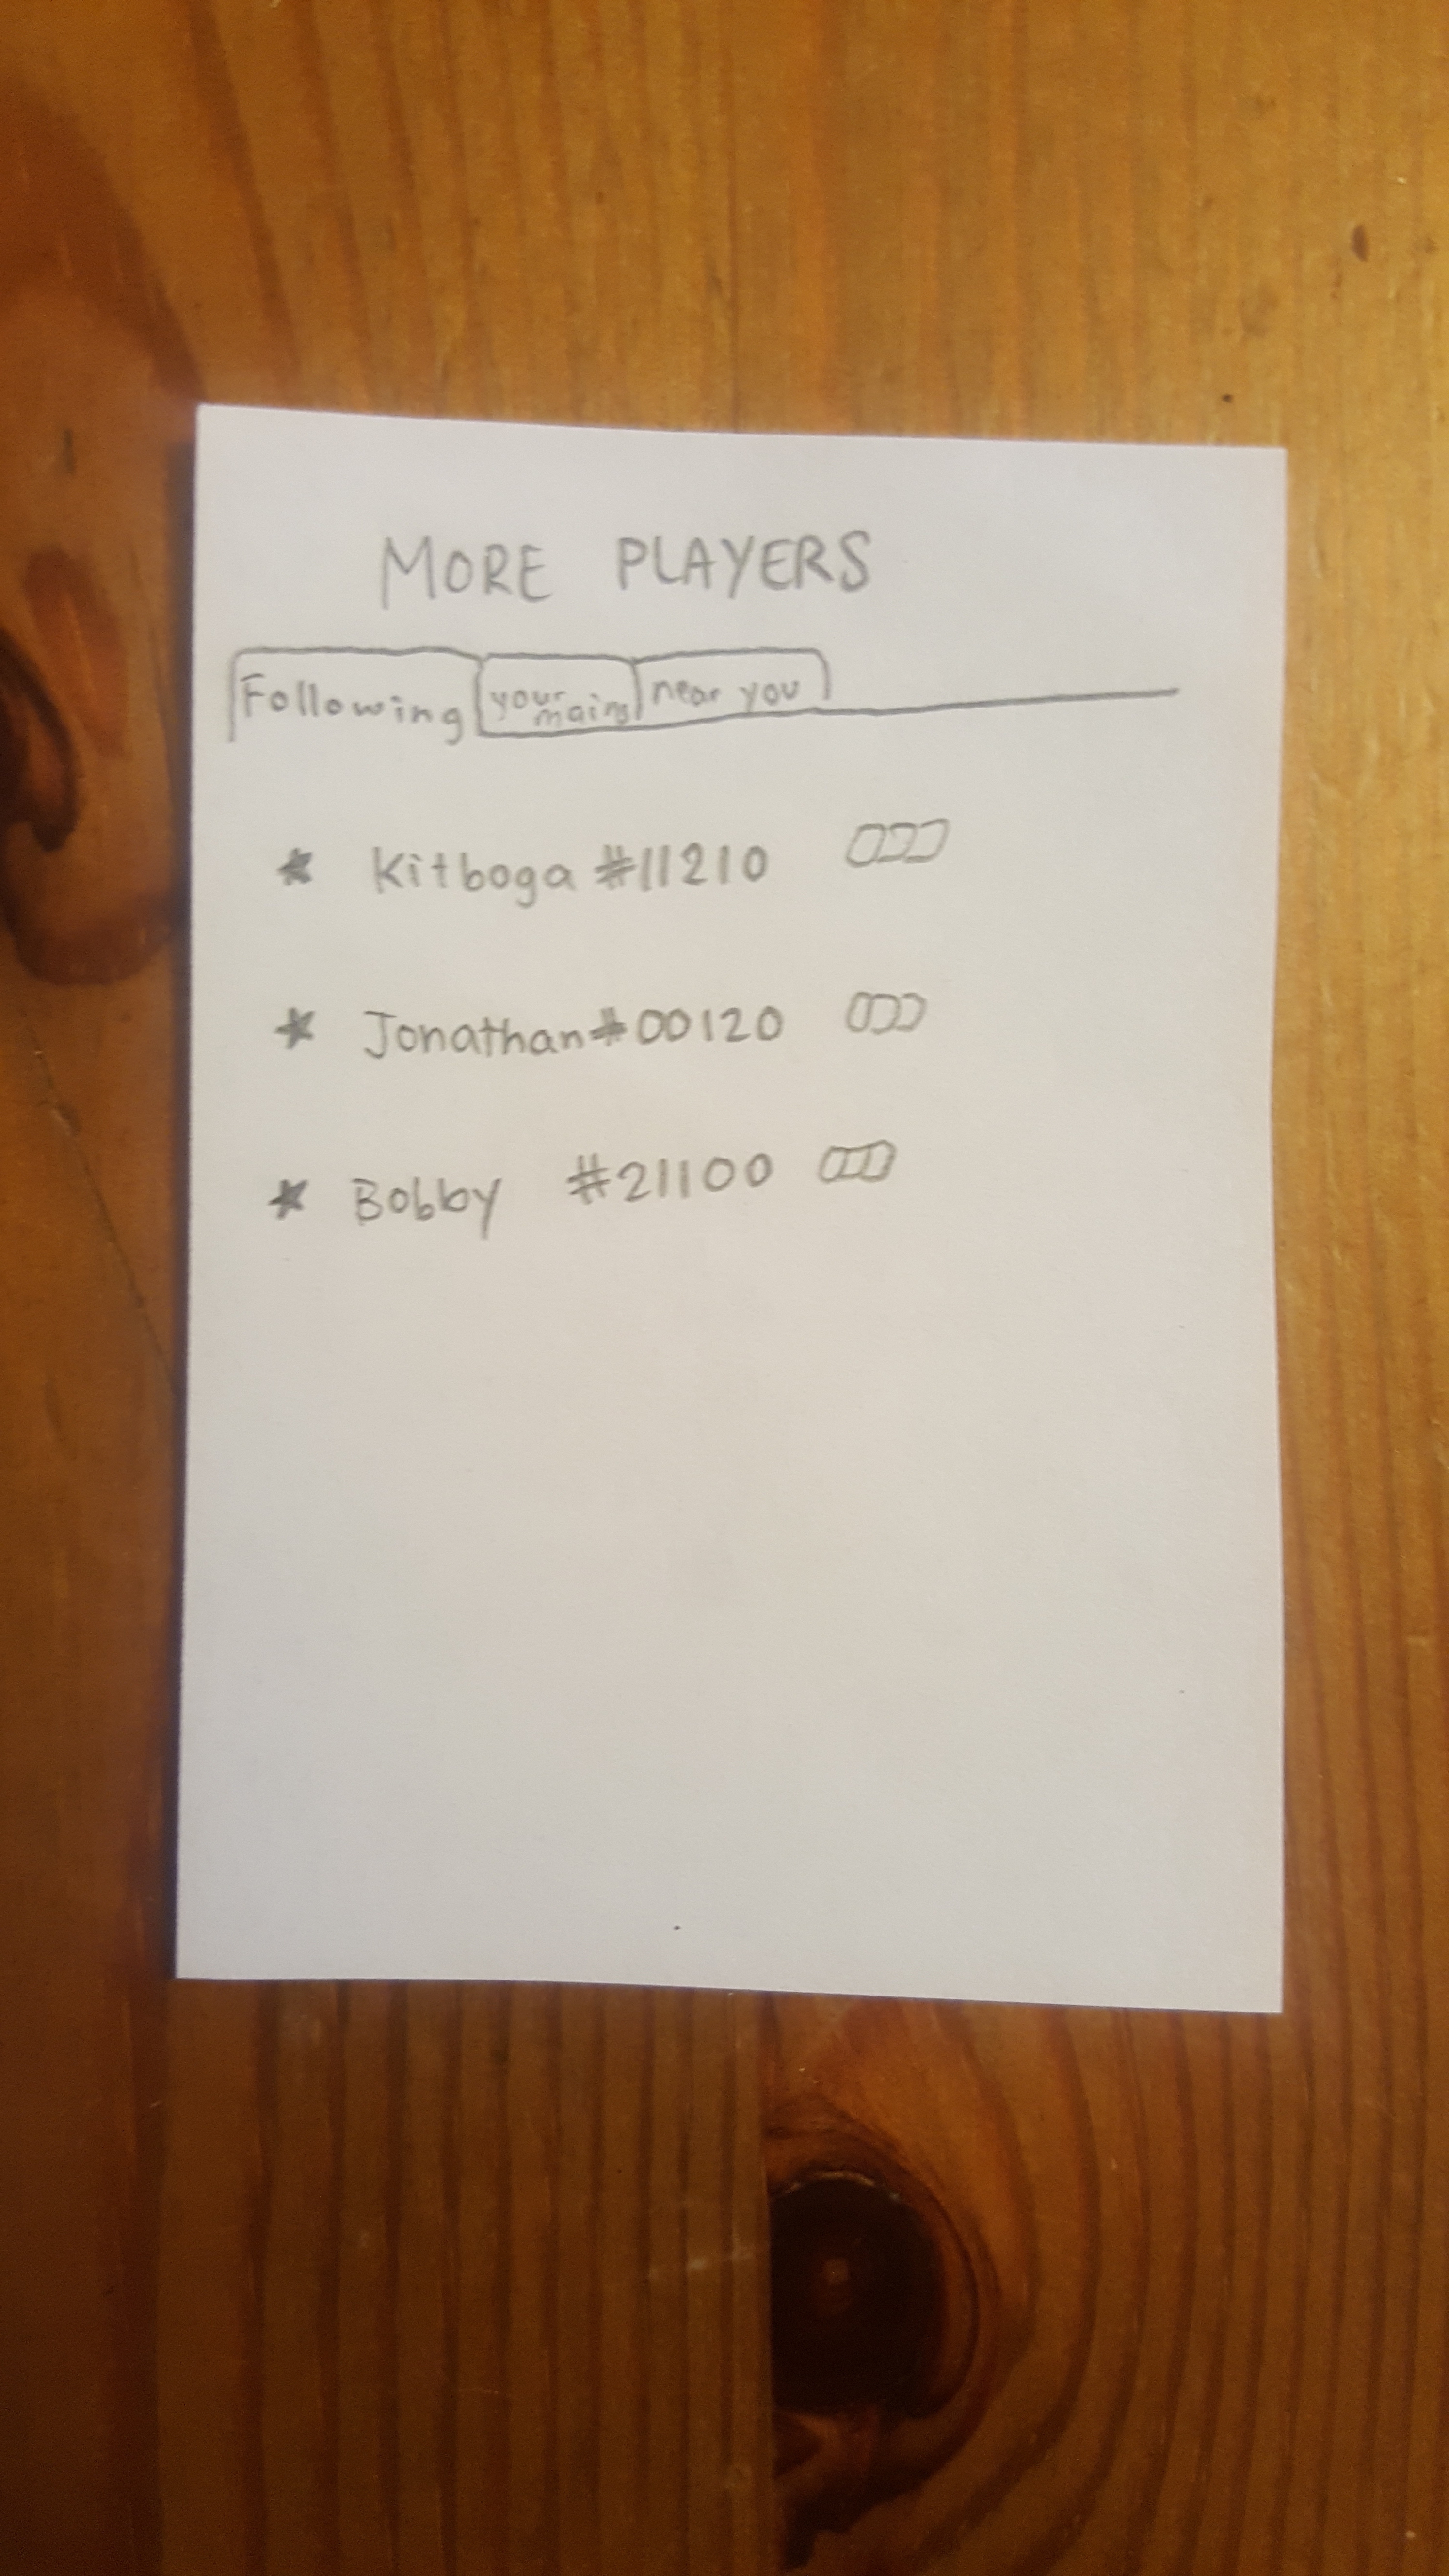 MORE PLAYERS
Following your mains near you
Kitboga #11210
Jonathan #00120
Bobby #21100